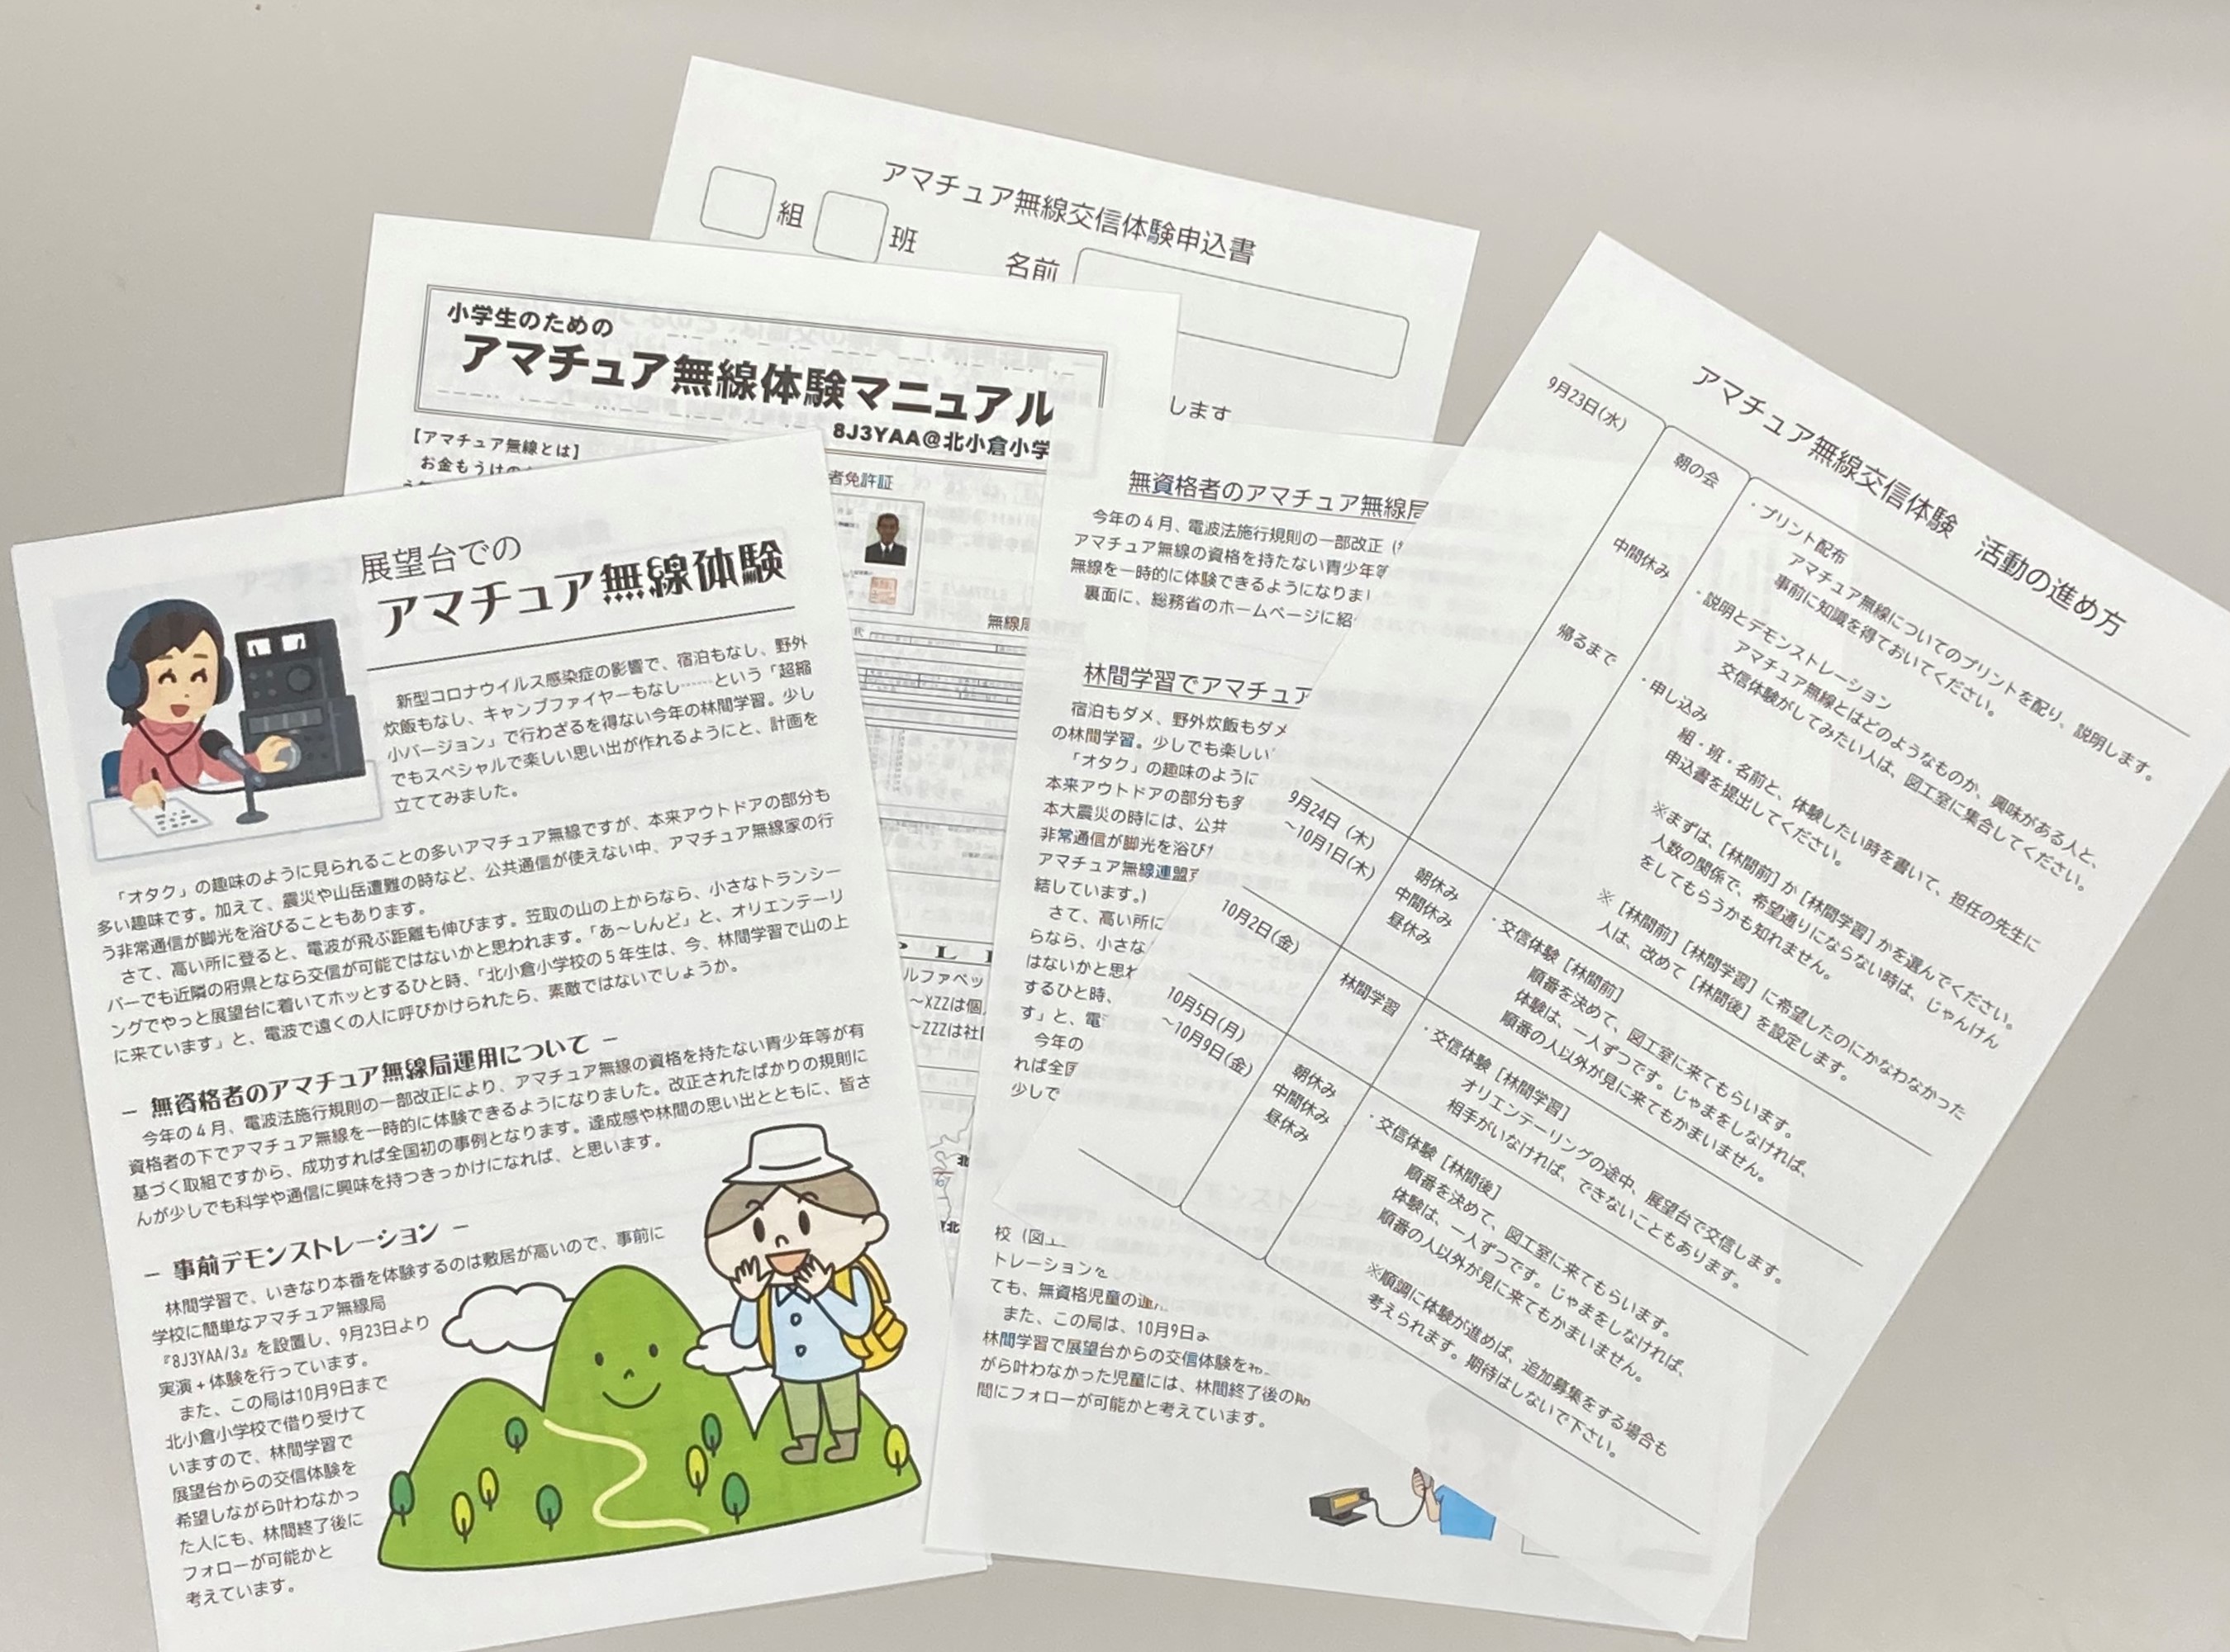 アマチュア無線交信体験申込書
組 班
名前
します
小学生のための
アマチュア無線体験マニュアル
8J3YAA@北小倉小学
【アマチュア無線とは】
お金もうけの
者免許証
無線局
ルファベッ
～XZZは個
～ZZZは社
展望台での
アマチュア無線体験
新型コロナウイルス感染症の影響で、宿泊もなし、野外
炊飯もなし、キャンプファイヤーもなし……という「超縮
小バージョン」で行わざるを得ない今年の林間学習。少し
でもスペシャルで楽しい思い出が作れるようにと、計画を
立ててみました。
「オタク」の趣味のように見られることの多いアマチュア無線ですが、本来アウトドアの部分も
多い趣味です。加えて、震災や山岳遭難の時など、公共通信が使えない中、アマチュア無線家の行
う非常通信が脚光を浴びることもあります。
さて、高い所に登ると、電波が飛ぶ距離も伸びます。笠取の山の上からなら、小さなトランシー
バーでも近隣の府県となら交信が可能ではないかと思われます。「あ～しんど」と、オリエンテーリ
ングでやっと展望台に着いてホッとするひと時、「北小倉小学校の５年生は、今、林間学習で山の上
に来ています」と、電波で遠くの人に呼びかけられたら、素敵ではないでしょうか。
－ 無資格者のアマチュア無線局運用について －
今年の４月、電波法施行規則の一部改正により、アマチュア無線の資格を持たない青少年等が有
資格者の下でアマチュア無線を一時的に体験できるようになりました。改正されたばかりの規則に
基づく取組ですから、成功すれば全国初の事例となります。達成感や林間の思い出とともに、皆さ
んが少しでも科学や通信に興味を持つきっかけになれば、と思います。
－ 事前デモンストレーション －
林間学習で、いきなり本番を体験するのは敷居が高いので、事前に
学校に簡単なアマチュア無線局
『8J3YAA/3』を設置し、9月23日より
実演＋体験を行っています。
また、この局は10月9日まで
北小倉小学校で借り受けて
いますので、林間学習で
展望台からの交信体験を
希望しながら叶わなかっ
た人にも、林間終了後に
フォローが可能かと
考えています。
無資格者のアマチュア無線局
今年の４月、電波法施行規則の一部改正（
アマチュア無線の資格を持たない青少年等
無線を一時的に体験できるようになりまし
裏面に、総務省のホームページに紹
林間学習でアマチュア
宿泊もダメ、野外炊飯もダメ
の林間学習。少しでも楽しい
「オタク」の趣味のように
本来アウトドアの部分も多
本大震災の時には、公共
非常通信が脚光を浴び
アマチュア無線連盟
結しています。）
さて、高い所に
らなら、小さな
はないかと思
するひと時、
す」と、電
今年の
れば全国
少しで
校（図工
トレーションを
ても、無資格児童の運
また、この局は、10月9日ま
林間学習で展望台からの交信体験を
がら叶わなかった児童には、林間終了後の
間にフォローが可能かと考えています。
アマチュア無線交信体験　活動の進め方
9月23日(水)
朝の会
・プリント配布
アマチュア無線についてのプリントを配り、説明します。
事前に知識を得ておいてください。
中間休み
・説明とデモンストレーション
アマチュア無線とはどのようなものか、興味がある人と、
交信体験がしてみたい人は、図工室に集合してください。
帰るまで
・申し込み
組・班・名前と、体験したい時を書いて、担任の先生に
申込書を提出してください。
※まずは、[林間前]か[林間学習]かを選んでください。
人数の関係で、希望通りにならない時は、じゃんけん
をしてもらうかも知れません。
※[林間前][林間学習]に希望したのにかなわなかった
人は、改めて[林間後]を設定します。
9月24日（木）
～10月1日(木)
朝休み
中間休み
昼休み
・交信体験[林間前]
順番を決めて、図工室に来てもらいます。
体験は、一人ずつです。じゃまをしなければ、
順番の人以外が見に来てもかまいません。
10月2日(金)
林間学習
・交信体験[林間学習]
オリエンテーリングの途中、展望台で交信します。
相手がいなければ、できないこともあります。
10月5日(月)
～10月9日(金)
朝休み
中間休み
昼休み
・交信体験[林間後]
順番を決めて、図工室に来てもらいます。
体験は、一人ずつです。じゃまをしなければ、
順番の人以外が見に来てもかまいません。
※順調に体験が進めば、追加募集をする場合も
考えられます。期待はしないで下さい。